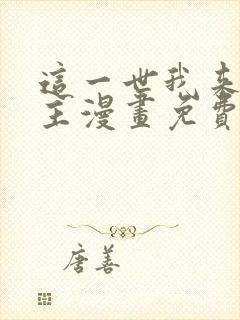 這一世我來
主漫畫免費
唐善